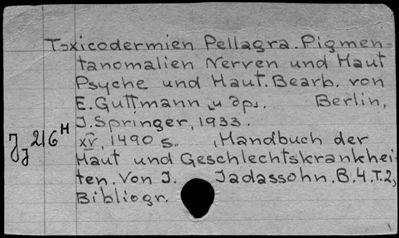 Toxicodermien Pellagra. Pigmen-
tanomalien Nerven und Haut
Psyche und Haut. Bearb. von
E. Guttmann u др. Berlin,
J. Springer, 1933.
XV, 1490 s. (Handbuch der
Haut und Geschlechtskrankhei-
ten. Von J. Jadassohn. B. 4. T. 2,
Bibliogr.
Jj 2|6 H